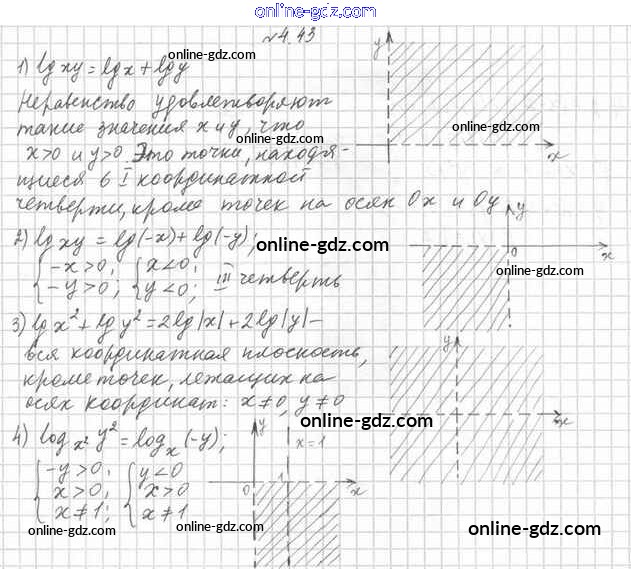 online-gdz.com
№4.43
1) lg xy = lg x + lg y
online-gdz.com
Неравенство удовлетворяют
такие значения x и y, что
x>0 и y>0. Это точки, находя-
щиеся в I координатной
четверти, кроме точек на осях Ox и Oy
y
online-gdz.com
x
online-gdz.com
2) lg xy = lg(-x) + lg(-y);
online-gdz.com
{ -x>0; { x<0;
{ -y>0; { y<0; III четверть
y
0
x
online-gdz.com
3) lg x² + lg y² = 2lg|x| + 2lg|y| –
вся координатная плоскость,
кроме точек, лежащих на
осях координат: x≠0, y≠0
y
x
online-gdz.com
4) log x² y² = log x (-y);
{ -y>0; { y<0
{ x>0; { x>0
{ x≠1; { x≠1
y
x=1
0
1
x
online-gdz.com
online-gdz.com